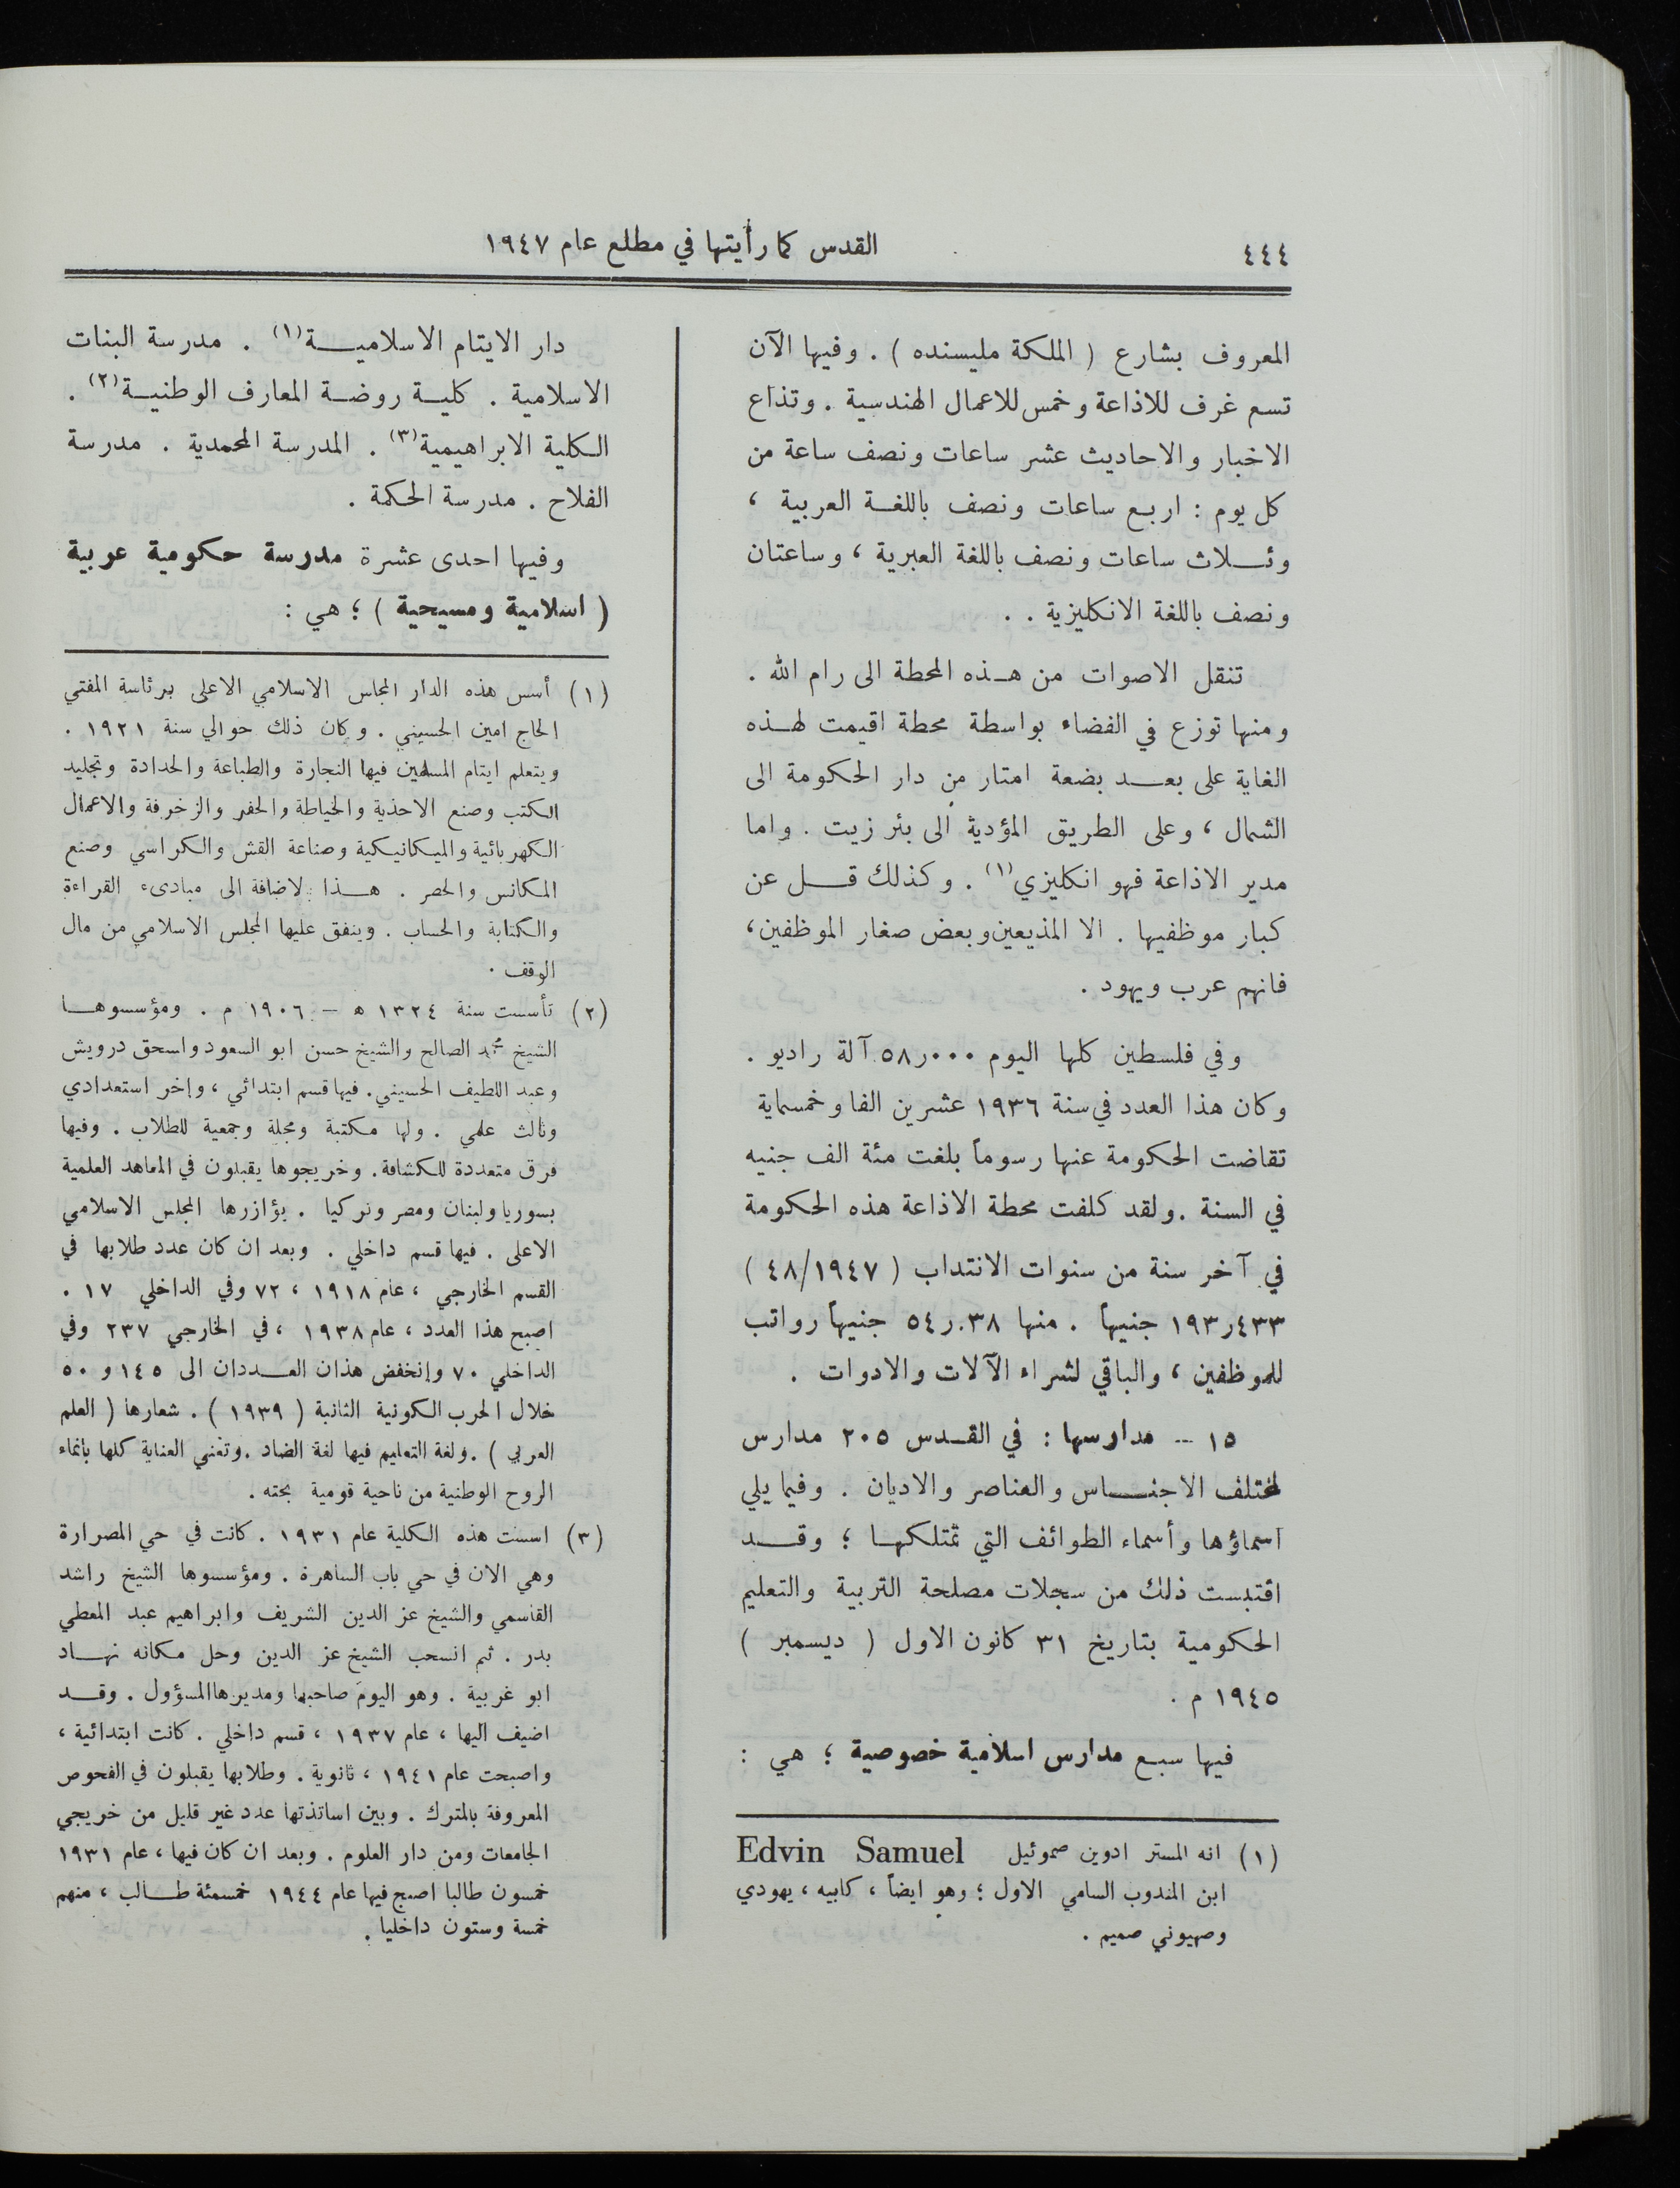 ٤٤٤
القدس كما رأيتها في مطلع عام ١٩٤٧
المعروف بشارع ( الملكة مليسنده ) . وفيها الآن
تسع غرف للاذاعة وخمس للاعمال الهندسية . وتذاع
الاخبار والاحاديث عشر ساعات ونصف ساعة من
كل يوم : اربع ساعات ونصف باللغة العربية ،
وثلاث ساعات ونصف باللغة العبرية ، وساعتان
ونصف باللغة الانكليزية . .
تنقل الاصوات من هذه المحطة الى رام الله .
ومنها توزع في الفضاء بواسطة محطة اقيمت لهذه
الغاية على بعد بضعة امتار من دار الحكومة الى
الشمال ، وعلى الطريق المؤدية الى بئر زيت . واما
مدير الاذاعة فهو انكليزي(١) . وكذلك قل عن
كبار موظفيها . الا المذيعين وبعض صغار الموظفين،
فانهم عرب ويهود .
وفي فلسطين كلها اليوم ٥٨٫٠٠٠ آلة راديو .
وكان هذا العدد في سنة ١٩٣٦ عشرين الفا وخمسماية
تقاضت الحكومة عنها رسوماً بلغت مئة الف جنيه
في السنة . ولقد كلفت محطة الاذاعة هذه الحكومة
في آخر سنة من سنوات الانتداب ( ٤٨/١٩٤٧ )
١٩٣٫٤٣٣ جنيهاً . منها ٥٤٫٠٣٨ جنيهاً رواتب
للموظفين ، والباقي لشراء الآلات والادوات .
١٥ - مدارسها : في القدس ٢٠٥ مدارس
لمختلف الاجناس والعناصر والاديان . وفيما يلي
اسماؤها وأسماء الطوائف التي تمتلكها ؛ وقد
اقتبست ذلك من سجلات مصلحة التربية والتعليم
الحكومية بتاريخ ٣١ كانون الاول ( ديسمبر )
١٩٤٥ م .
فيها سبع مدارس اسلامية خصوصية ؛ هي :
(١) انه المستر ادوين صموئيل Edvin Samuel
ابن المندوب السامي الاول ؛ وهو ايضاً ، كابيه ، يهودي
وصهيوني صميم .
دار الايتام الاسلامية(١) . مدرسة البنات
الاسلامية . كلية روضة المعارف الوطنية(٢) .
الكلية الابراهيمية(٣) . المدرسة المحمدية . مدرسة
الفلاح . مدرسة الحكمة .
وفيها احدى عشرة مدرسة حكومية عربية
( اسلامية ومسيحية ) ؛ هي :
(١) أسس هذه الدار المجاس الاسلامي الاعلى برئاسة المفتي
الحاج امين الحسيني . وكان ذلك حوالي سنة ١٩٢١ .
ويتعلم ايتام المسلمين فيها النجارة والطباعة والحدادة وتجليد
الكتب وصنع الاحذية والخياطة والحفر والزخرفة والاعمال
الكهربائية والميكانيكية وصناعة القش والكراسي وصنع
المكانس والحصر . هذا بلاضافة الى مبادىء القراءة
والكتابة والحساب . وينفق عليها المجلس الاسلامي من مال
الوقف .
(٢) تأسست سنة ١٣٢٤ ه - ١٩٠٦ م . ومؤسسوها
الشيخ محمد الصالح والشيخ حسن ابو السعود واسحق درويش
وعبد اللطيف الحسيني . فيها قسم ابتدائي ، وإخر استعدادي
وثالث علمي . ولها مكتبة ومجلة وجمعية للطلاب . وفيها
فرق متعددة للكشافة . وخريجوها يقبلون في المعاهد العلمية
بسوريا ولبنان ومصر وتركيا . يؤازرها المجلس الاسلامي
الاعلى . فيها قسم داخلي . وبعد ان كان عدد طلابها في
القسم الخارجي ، عام ١٩١٨ ، ٧٢ وفي الداخلي ١٧ .
اصبح هذا العدد ، عام ١٩٣٨ ، في الخارجي ٢٣٧ وفي
الداخلي ٧٠ وإنخفض هذان العددان الى ١٤٥ و ٥٠
خلال الحرب الكونية الثانية ( ١٩٣٩ ) . شعارها ( العلم
العربي ) . ولغة التعليم فيها لغة الضاد . وتعنى العناية كلها بإنماء
الروح الوطنية من ناحية قومية بحته .
(٣) اسست هذه الكلية عام ١٩٣١ . كانت في حي المصرارة
وهي الان في حي باب الساهرة . ومؤسسوها الشيخ راشد
القاسمي والشيخ عز الدين الشريف وابراهيم عبد المعطي
بدر . ثم انسحب الشيخ عز الدين وحل مكانه نهاد
ابو غربية . وهو اليوم صاحبها ومديرها المسؤول . وقد
اضيف اليها ، عام ١٩٣٧ ، قسم داخلي . كانت ابتدائية ،
واصبحت عام ١٩٤١ ، ثانوية . وطلابها يقبلون في الفحوص
المعروفة بالمترك . وبين اساتذتها عدد غير قليل من خريجي
الجامعات ومن دار العلوم . وبعد ان كان فيها ، عام ١٩٣١
خمسون طالبا اصبح فيها عام ١٩٤٤ خمسمئة طالب ، منهم
خمسة وستون داخليا .